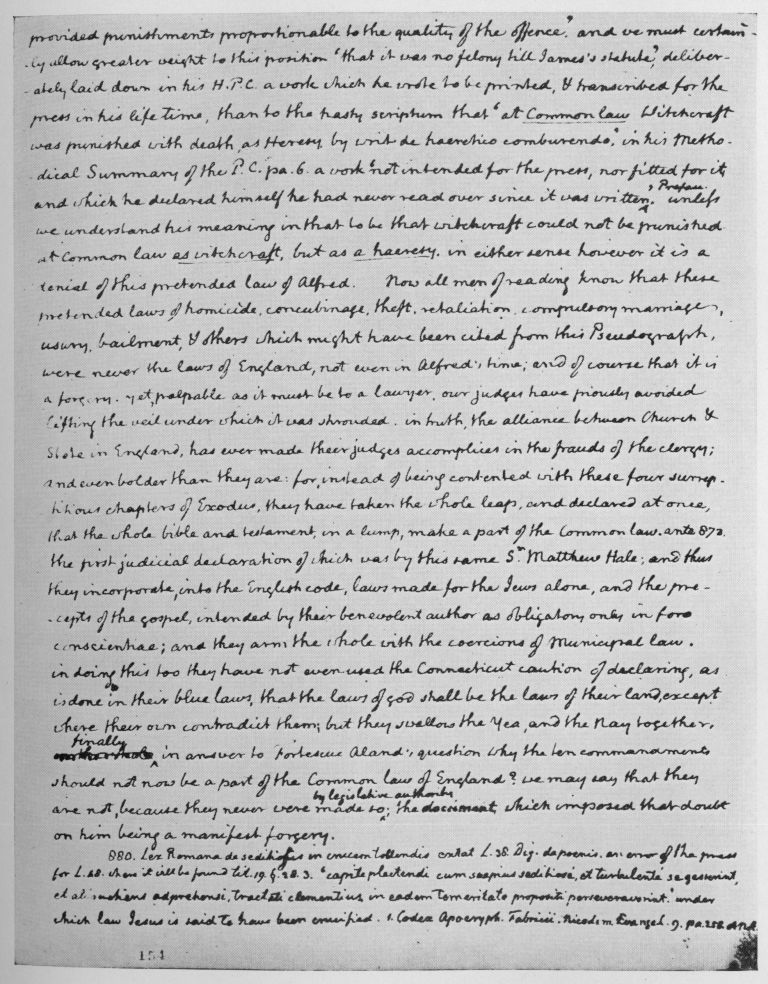 provided punishments proportionable to the quality of the offence". and we must certain-
-ly allow greater weight to this position "that it was no felony till James's statute", deliber-
-ately laid down in his H.P.C. a work which he wrote to be printed, & transcribed for the
press in his life time, than to the hasty scriptum that "at Common law Witchcraft
was punished with death, as Heresy by writ de haeretico comburendo," in his Metho-
-dical Summary of the P.C. pa. 6. a work "not intended for the press, nor fitted for it,
and which he declared himself he had never read over since it was written," Prefau. unless
we understand his meaning in that to be that witchcraft could not be punished
at Common law as witchcraft, but as a haeresy. in either sense however it is a
denial of this pretended law of Alfred. Now all men of reading know that these
pretended laws of homicide, concubinage, theft, retaliation, compulsory marriage,
usury, bailment, & others which might have been cited from this Pseudograph,
were never the laws of England, not even in Alfred's time; and of course that it is
a forgery. yet, palpable as it must be to a lawyer, our judges have piously avoided
lifting the veil under which it was shrouded. in truth, the alliance between Church &
State in England, has ever made their judges accomplices in the frauds of the clergy;
and even bolder than they are: for, instead of being contented with these four surrep-
-titious chapters of Exodus, they have taken the whole leap, and declared at once,
that the whole bible and testament, in a lump, make a part of the Common law. ante 873.
the first judicial declaration of which was by this same Sr. Matthew Hale: and thus
they incorporate, into the English code, laws made for the Jews alone, and the pre-
-cepts of the gospel, intended by their benevolent author as obligatory only in foro
conscientiae; and they arm the whole with the coercions of Municipal law.
in doing this too they have not even used the Connecticut caution of declaring, as
is done in their blue laws, that the laws of god shall be the laws of their land, except
where their own contradict them; but they swallow the Yea, and the Nay together.
finally in answer to Fortescue Aland's question why the ten commandments
should not now be a part of the Common law of England? we may say that they
are not, because they never were made so by legislative authority; the document, which imposed that doubt
on him being a manifest forgery.
880. Lex Romana de seditiosis in crucem tollendis extat L. 38. Dig. de poenis. an error of the press
for L. 68. where it will be found tit. 19. §. 28. 3. "capite plectendi cum saepius seditiose, et turbulente se gesserint,
et aliquotiens adprehensi, tractati clementius, in eadem temeritate propositi perseveraverint." under
which law Jesus is said to have been crucified. 1. Codex Apocryph. Fabricii. Nicodem. Evangel. 9. pa. 258.
154